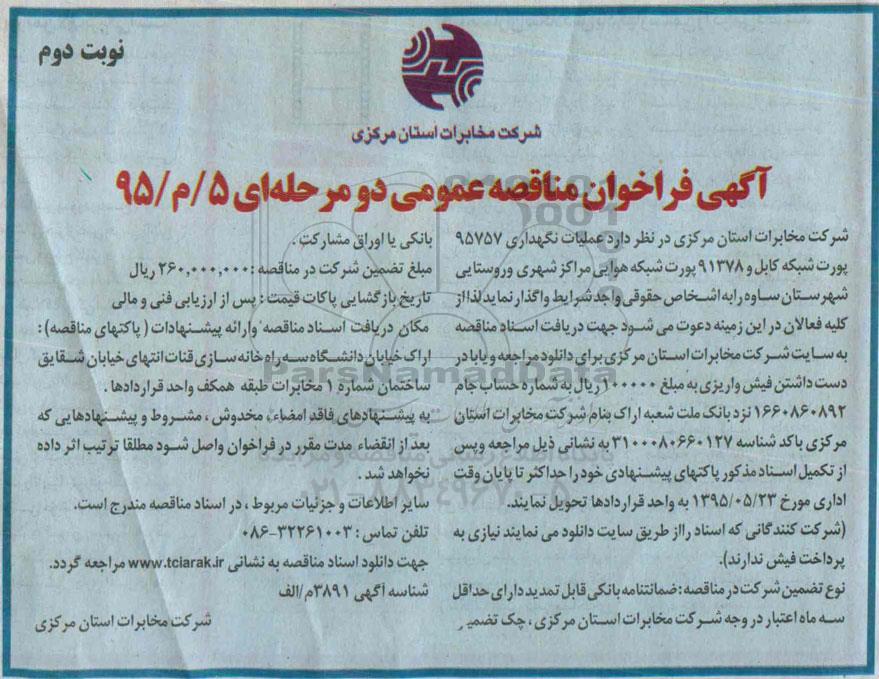 نوبت دوم
شرکت مخابرات استان مرکزی
آگهی فراخوان مناقصه عمومی دو مرحله‌ای ۵/م/۹۵
شرکت مخابرات استان مرکزی در نظر دارد عملیات نگهداری ۹۵۷۵۷
پورت شبکه کابل و ۹۱۳۷۸ پورت شبکه هوایی مراکز شهری وروستایی
شهرستان ساوه رابه اشخاص حقوقی واجد شرایط واگذار نماید لذا از
کلیه فعالان در این زمینه دعوت می شود جهت دریافت اسناد مناقصه
به سایت شرکت مخابرات استان مرکزی برای دانلود مراجعه و یا با در
دست داشتن فیش واریزی به مبلغ ۱۰۰۰۰۰۰ ریال به شماره حساب جام
۱۶۶۰۸۶۰۸۹۲ نزد بانک ملت شعبه اراک بنام شرکت مخابرات استان
مرکزی با کد شناسه ۳۱۰۰۰۸۰۶۶۰۱۲۷ به نشانی ذیل مراجعه وپس
از تکمیل اسناد مذکور پاکتهای پیشنهادی خود را حداکثر تا پایان وقت
اداری مورخ ۱۳۹۵/۰۵/۲۳ به واحد قراردادها تحویل نمایند.
(شرکت کنندگانی که اسناد رااز طریق سایت دانلود می نمایند نیازی به
پرداخت فیش ندارند).
نوع تضمین شرکت در مناقصه: ضمانتنامه بانکی قابل تمدید دارای حداقل
سه ماه اعتبار در وجه شرکت مخابرات استان مرکزی ، چک تضمین
بانکی یا اوراق مشارکت .
مبلغ تضمین شرکت در مناقصه : ۲۶۰,۰۰۰,۰۰۰ ریال
تاریخ بازگشایی پاکات قیمت : پس از ارزیابی فنی و مالی
مکان دریافت اسناد مناقصه وارائه پیشنهادات ( پاکتهای مناقصه) :
اراک خیابان دانشگاه سه راه خانه سازی قنات انتهای خیابان شقایق
ساختمان شماره ۱ مخابرات طبقه همکف واحد قراردادها .
به پیشنهادهای فاقد امضاء ، مخدوش ، مشروط و پیشنهادهایی که
بعد از انقضاء مدت مقرر در فراخوان واصل شود مطلقا ترتیب اثر داده
نخواهد شد .
سایر اطلاعات و جزئیات مربوط ، در اسناد مناقصه مندرج است.
تلفن تماس : ۳۲۲۶۱۰۰۳-۰۸۶
جهت دانلود اسناد مناقصه به نشانی www.tciarak.ir مراجعه گردد.
شناسه آگهی ۳۸۹۱/م/الف
شرکت مخابرات استان مرکزی
ParsNamadData